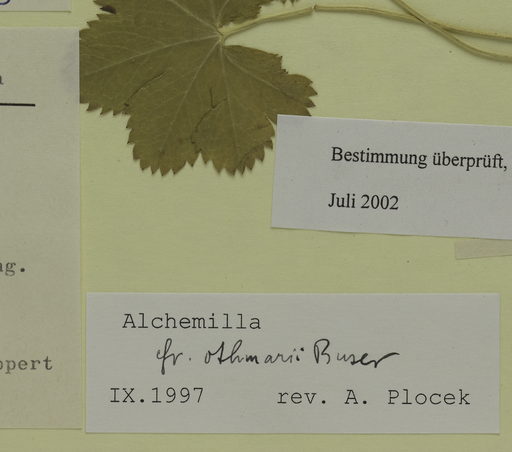 Bestimmung überprüft,
Juli 2002
Alchemilla
cfr. othmarii Buser
IX.1997 rev. A. Plocek